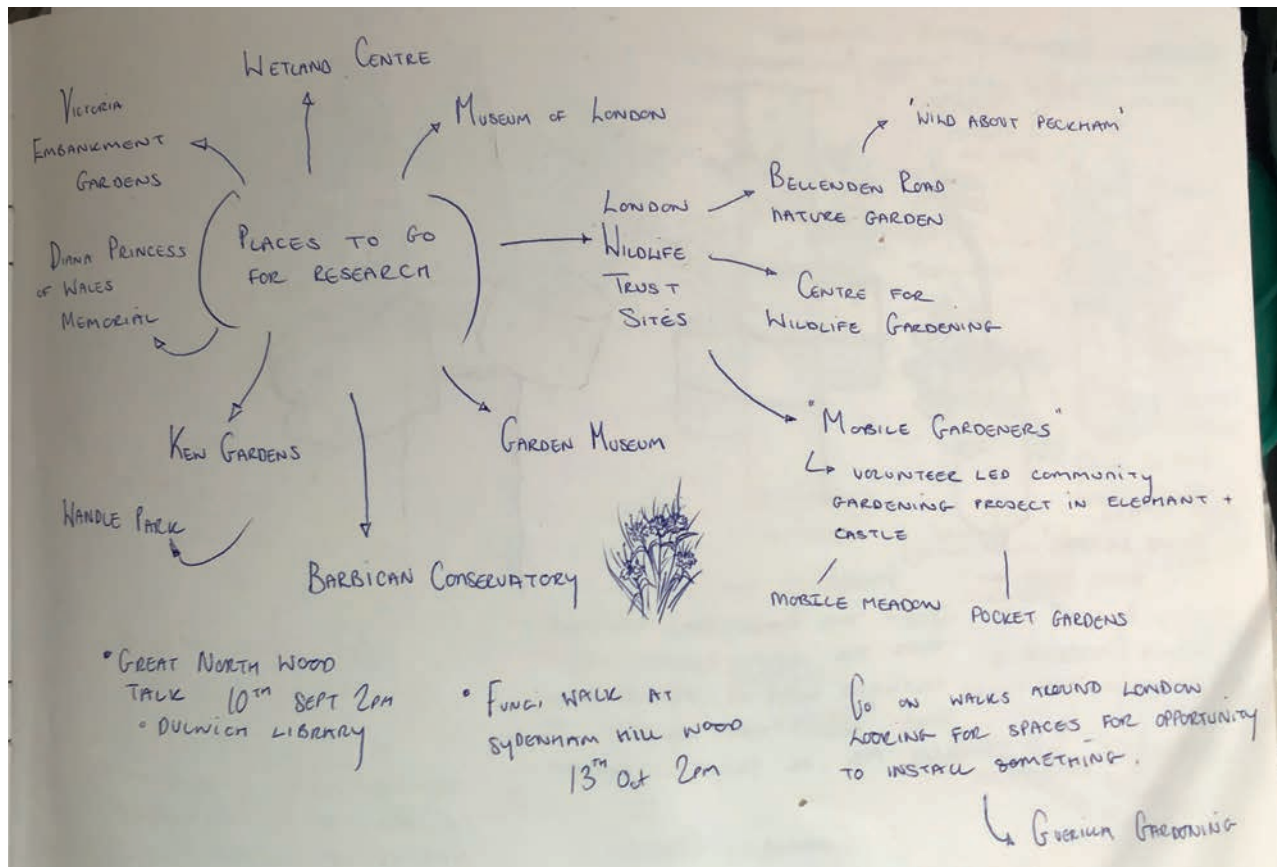 WETLAND CENTRE
VICTORIA
EMBANKMENT
GARDENS
MUSEUM OF LONDON
'WILD ABOUT PECKHAM'
BELLENDEN ROAD
NATURE GARDEN
PLACES TO GO
FOR RESEARCH
LONDON
WILDLIFE
TRUST
SITES
DIANA PRINCESS
OF WALES
MEMORIAL
CENTRE FOR
WILDLIFE GARDENING
KEW GARDENS
GARDEN MUSEUM
"MOBILE GARDENERS"
VOLUNTEER LED COMMUNITY
GARDENING PROJECT IN ELEPHANT +
CASTLE
WANDLE PARK
BARBICAN CONSERVATORY
MOBILE MEADOW
POCKET GARDENS
• GREAT NORTH WOOD
TALK 10TH SEPT 2PM
• DULWICH LIBRARY
• FUNGI WALK AT
SYDENHAM HILL WOOD
13TH Oct 2PM
GO ON WALKS AROUND LONDON
LOOKING FOR SPACES FOR OPPORTUNITY
TO INSTALL SOMETHING.
GUERILLA GARDENING